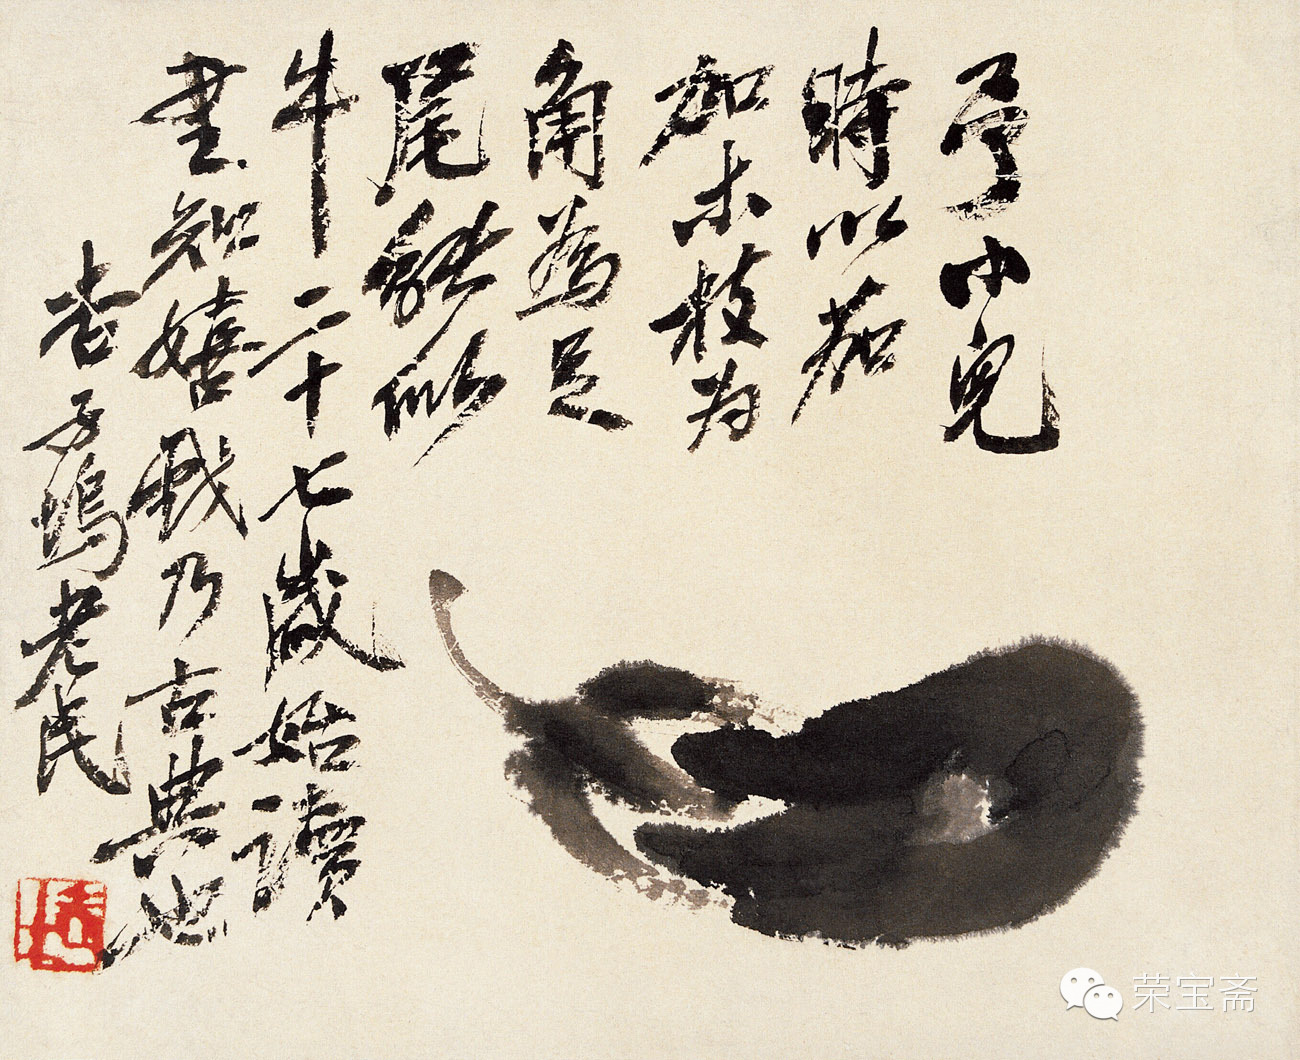 予小兒
時以茄
加木枝为
角為足
尾能似
牛二十七歲始讀
書知嬉戲乃古典也
老子鳴老民
荣宝斋